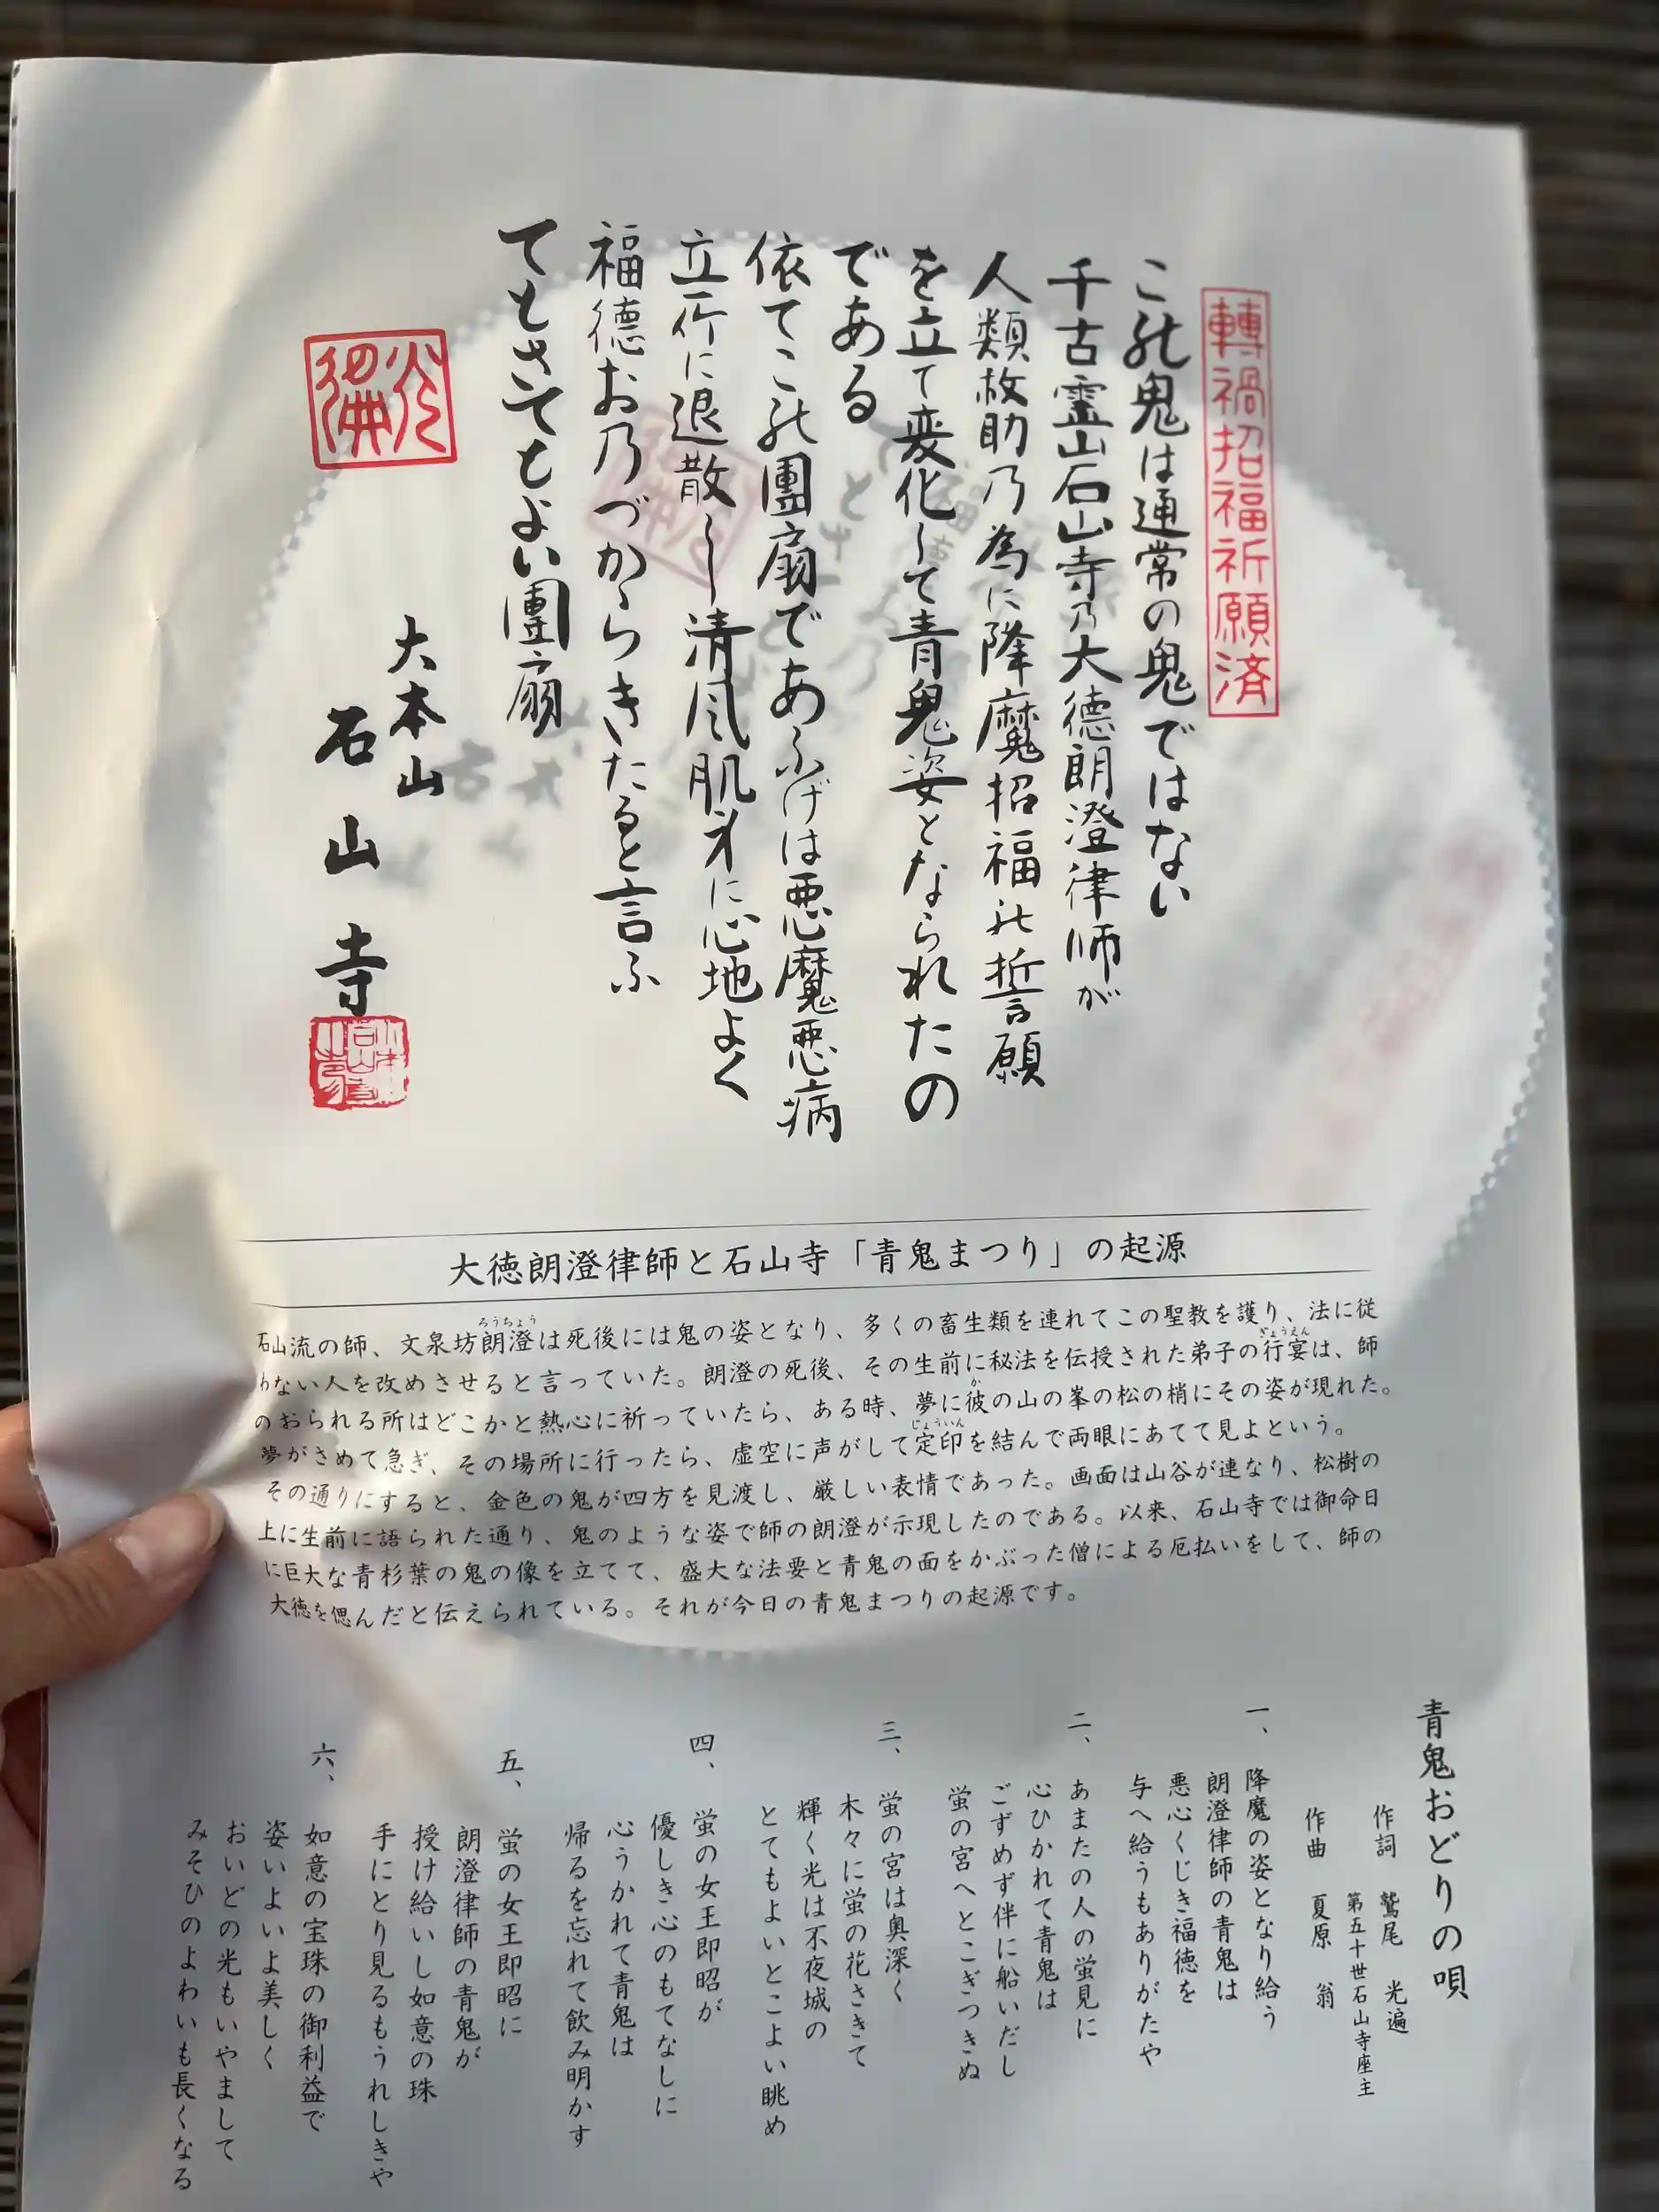 轉禍招福祈願済
この鬼は通常の鬼ではない
千古霊山石山寺乃大德朗澄律師が
人類救助乃為に降魔招福の誓願
を立て変化して青鬼姿となられたの
である
依てこの團扇であふげは悪魔悪病
立所に退散し清風肌身に心地よく
福德お乃づからきたると言ふ
てもさてもよい團扇
大本山
石山寺
大徳朗澄律師と石山寺「青鬼まつり」の起源
石山流の師、文泉坊朗澄は死後には鬼の姿となり、多くの畜生類を連れてこの聖教を護り、法に従
わない人を改めさせると言っていた。朗澄の死後、その生前に秘法を伝授された弟子の行宴は、師
のおられる所はどこかと熱心に祈っていたら、ある時、夢に彼の山の峯の松の梢にその姿が現れた。
夢がさめて急ぎ、その場所に行ったら、虚空に声がして定印を結んで両眼にあてて見よという。
その通りにすると、金色の鬼が四方を見渡し、厳しい表情であった。画面は山谷が連なり、松樹の
上に生前に語られた通り、鬼のような姿で師の朗澄が示現したのである。以来、石山寺では御命日
に巨大な青杉葉の鬼の像を立てて、盛大な法要と青鬼の面をかぶった僧による厄払いをして、師の
大徳を偲んだと伝えられている。それが今日の青鬼まつりの起源です。
青鬼おどりの唄
作詞 鷲尾 光遍
第五十世石山寺座主
作曲 夏原 翁
一、降魔の姿となり給う
朗澄律師の青鬼は
悪心くじき福徳を
与へ給うもありがたや
二、あまたの人の蛍見に
心ひかれて青鬼は
ごずめず伴に船いだし
蛍の宮へとこぎつきぬ
三、蛍の宮は奥深く
木々に蛍の花さきて
輝く光は不夜城の
とてもよいとこよい眺め
四、蛍の女王即昭が
優しき心のもてなしに
心うかれて青鬼は
帰るを忘れて飲み明かす
五、蛍の女王即昭に
朗澄律師の青鬼が
授け給いし如意の珠
手にとり見るもうれしきや
六、如意の宝珠の御利益で
姿いよいよ美しく
おいどの光もいやまして
みそひのよわいも長くなる